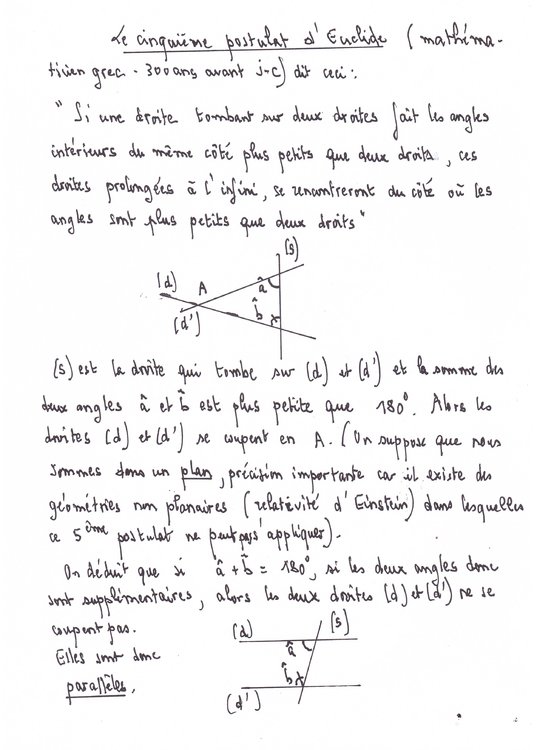 Le cinquième postulat d'Euclide (mathéma-
ticien grec - 300 ans avant J-C) dit ceci :
" Si une droite tombant sur deux droites fait les angles
intérieurs du même côté plus petits que deux droits, ces
droites prolongées à l'infini, se rencontreront du côté où les
angles sont plus petits que deux droits "
(s)
(d)
A
â
(d')
b̂
(s) est la droite qui tombe sur (d) et (d') et la somme des
deux angles â et b̂ est plus petite que 180°. Alors les
droites (d) et (d') se coupent en A. (On suppose que nous
sommes dans un plan, précision importante car il existe des
géométries non planaires (relativité d'Einstein) dans lesquelles
ce 5ème postulat ne peut pas s'appliquer).
On déduit que si â + b̂ = 180°, si les deux angles donc
sont supplémentaires, alors les deux droites (d) et (d') ne se
coupent pas.
Elles sont donc
parallèles.
(d)
(s)
â
b̂
(d')